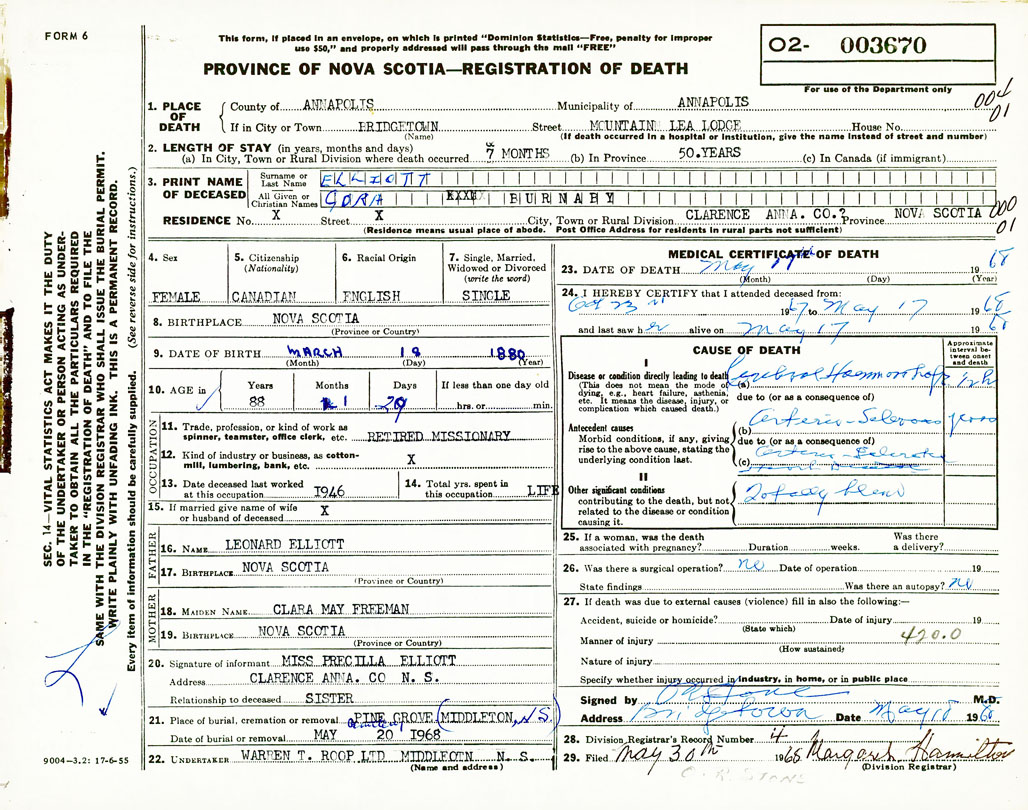 FORM 6
This form, if placed in an envelope, on which is printed "Dominion Statistics—Free, penalty for improper
use $50," and properly addressed will pass through the mail "FREE"
PROVINCE OF NOVA SCOTIA—REGISTRATION OF DEATH
O2- 003670
For use of the Department only
004
01
1. PLACE OF DEATH
County of ANNAPOLIS Municipality of ANNAPOLIS
If in City or Town BRIDGETOWN Street MOUNTAIN LEA LODGE House No.
(Name) (If death occurred in a hospital or institution, give the name instead of street and number)
2. LENGTH OF STAY (in years, months and days)
(a) In City, Town or Rural Division where death occurred 7 MONTHS (b) In Province 50.YEARS (c) In Canada (if immigrant)
3. PRINT NAME OF DECEASED
Surname or Last Name ELLIOTT
All Given or Christian Names CORA BURNABY
RESIDENCE No. X Street X City, Town or Rural Division CLARENCE ANNA. CO.? Province NOVA SCOTIA
000
01
(Residence means usual place of abode. Post Office Address for residents in rural parts not sufficient)
4. Sex
FEMALE
5. Citizenship
(Nationality)
CANADIAN
6. Racial Origin
ENGLISH
7. Single, Married,
Widowed or Divorced
(write the word)
SINGLE
8. BIRTHPLACE NOVA SCOTIA
(Province or Country)
9. DATE OF BIRTH MARCH 18 1880
(Month) (Day) (Year)
10. AGE in
Years Months Days If less than one day old
88 1 29 hrs. or min.
OCCUPATION
11. Trade, profession, or kind of work as
spinner, teamster, office clerk, etc. RETIRED MISSIONARY
12. Kind of industry or business, as cotton-
mill, lumbering, bank, etc. X
13. Date deceased last worked
at this occupation 1946
14. Total yrs. spent in
this occupation LIFE
15. If married give name of wife
or husband of deceased X
FATHER
16. NAME LEONARD ELLIOTT
17. BIRTHPLACE NOVA SCOTIA
(Province or Country)
MOTHER
18. MAIDEN NAME CLARA MAY FREEMAN
19. BIRTHPLACE NOVA SCOTIA
(Province or Country)
20. Signature of informant MISS PRECILLA ELLIOTT
Address CLARENCE ANNA. CO N. S.
Relationship to deceased SISTER
21. Place of burial, cremation or removal PINE GROVE (MIDDLETON, N.S.)
Date of burial or removal MAY 20 1968
22. UNDERTAKER WARREN T. ROOP LTD MIDDLEOTN N. S.
(Name and address)
MEDICAL CERTIFICATE OF DEATH
23. DATE OF DEATH May 17th 1968
(Month) (Day) (Year)
24. I HEREBY CERTIFY that I attended deceased from:
Oct 23 1967 to May 17 1968
and last saw her alive on May 17 1968
CAUSE OF DEATH
Approximate
interval be-
tween onset
and death
I
Disease or condition directly leading to death
(This does not mean the mode of
dying, e.g., heart failure, asthenia,
etc. It means the disease, injury, or
complication which caused death.)
(a) Cerebral Haemorrhage
due to (or as a consequence of)
Antecedent causes
Morbid conditions, if any, giving
rise to the above cause, stating the
underlying condition last.
(b) Arterio-Sclerosis
due to (or as a consequence of)
(c)
II
Other significant conditions
contributing to the death, but not
related to the disease or condition
causing it.
Totally blind
25. If a woman, was the death
associated with pregnancy? Duration weeks. Was there
a delivery?
26. Was there a surgical operation? no Date of operation 19
State findings Was there an autopsy? no
27. If death was due to external causes (violence) fill in also the following:—
Accident, suicide or homicide? Date of injury 19
(State which)
Manner of injury 420.0
(How sustained)
Nature of injury
Specify whether injury occurred in industry, in home, or in public place
Signed by M.D.
Address Bridgetown Date May 18 1968
28. Division Registrar's Record Number 4
29. Filed May 30th 1968 Margaret Hamilton
(Division Registrar)
SEC. 14—VITAL STATISTICS ACT MAKES IT THE DUTY
OF THE UNDERTAKER OR PERSON ACTING AS UNDER-
TAKER TO OBTAIN ALL THE PARTICULARS REQUIRED
IN THE "REGISTRATION OF DEATH" AND TO FILE THE
SAME WITH THE DIVISION REGISTRAR WHO SHALL ISSUE THE BURIAL PERMIT.
WRITE PLAINLY WITH UNFADING INK. THIS IS A PERMANENT RECORD.
Every item of information should be carefully supplied. (See reverse side for instructions.)
9004—3.2: 17-6-55